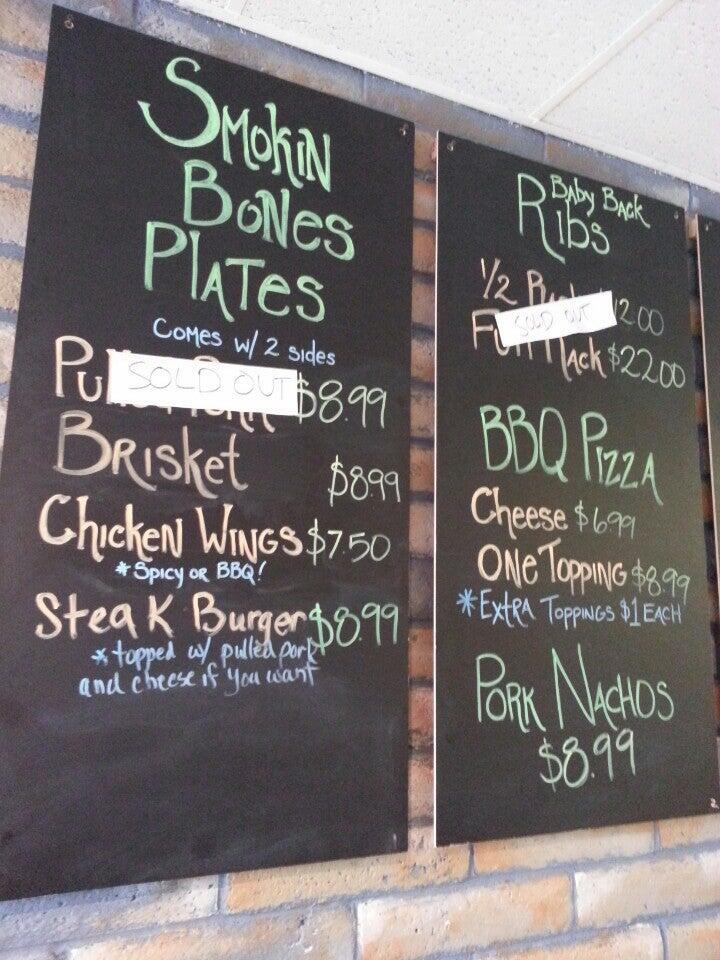 Smokin
Bones
Plates
Comes w/ 2 sides
SOLD OUT $8.99
Brisket $8.99
Chicken Wings $7.50
*Spicy or BBQ!
Steak Burger $8.99
*topped w/ pulled pork
and cheese if you want
Baby Back
Ribs
1/2 12.00
SOLD OUT
Rack $22.00
BBQ Pizza
Cheese $6.99
One Topping $8.99
*Extra Toppings $1 Each
Pork Nachos
$8.99